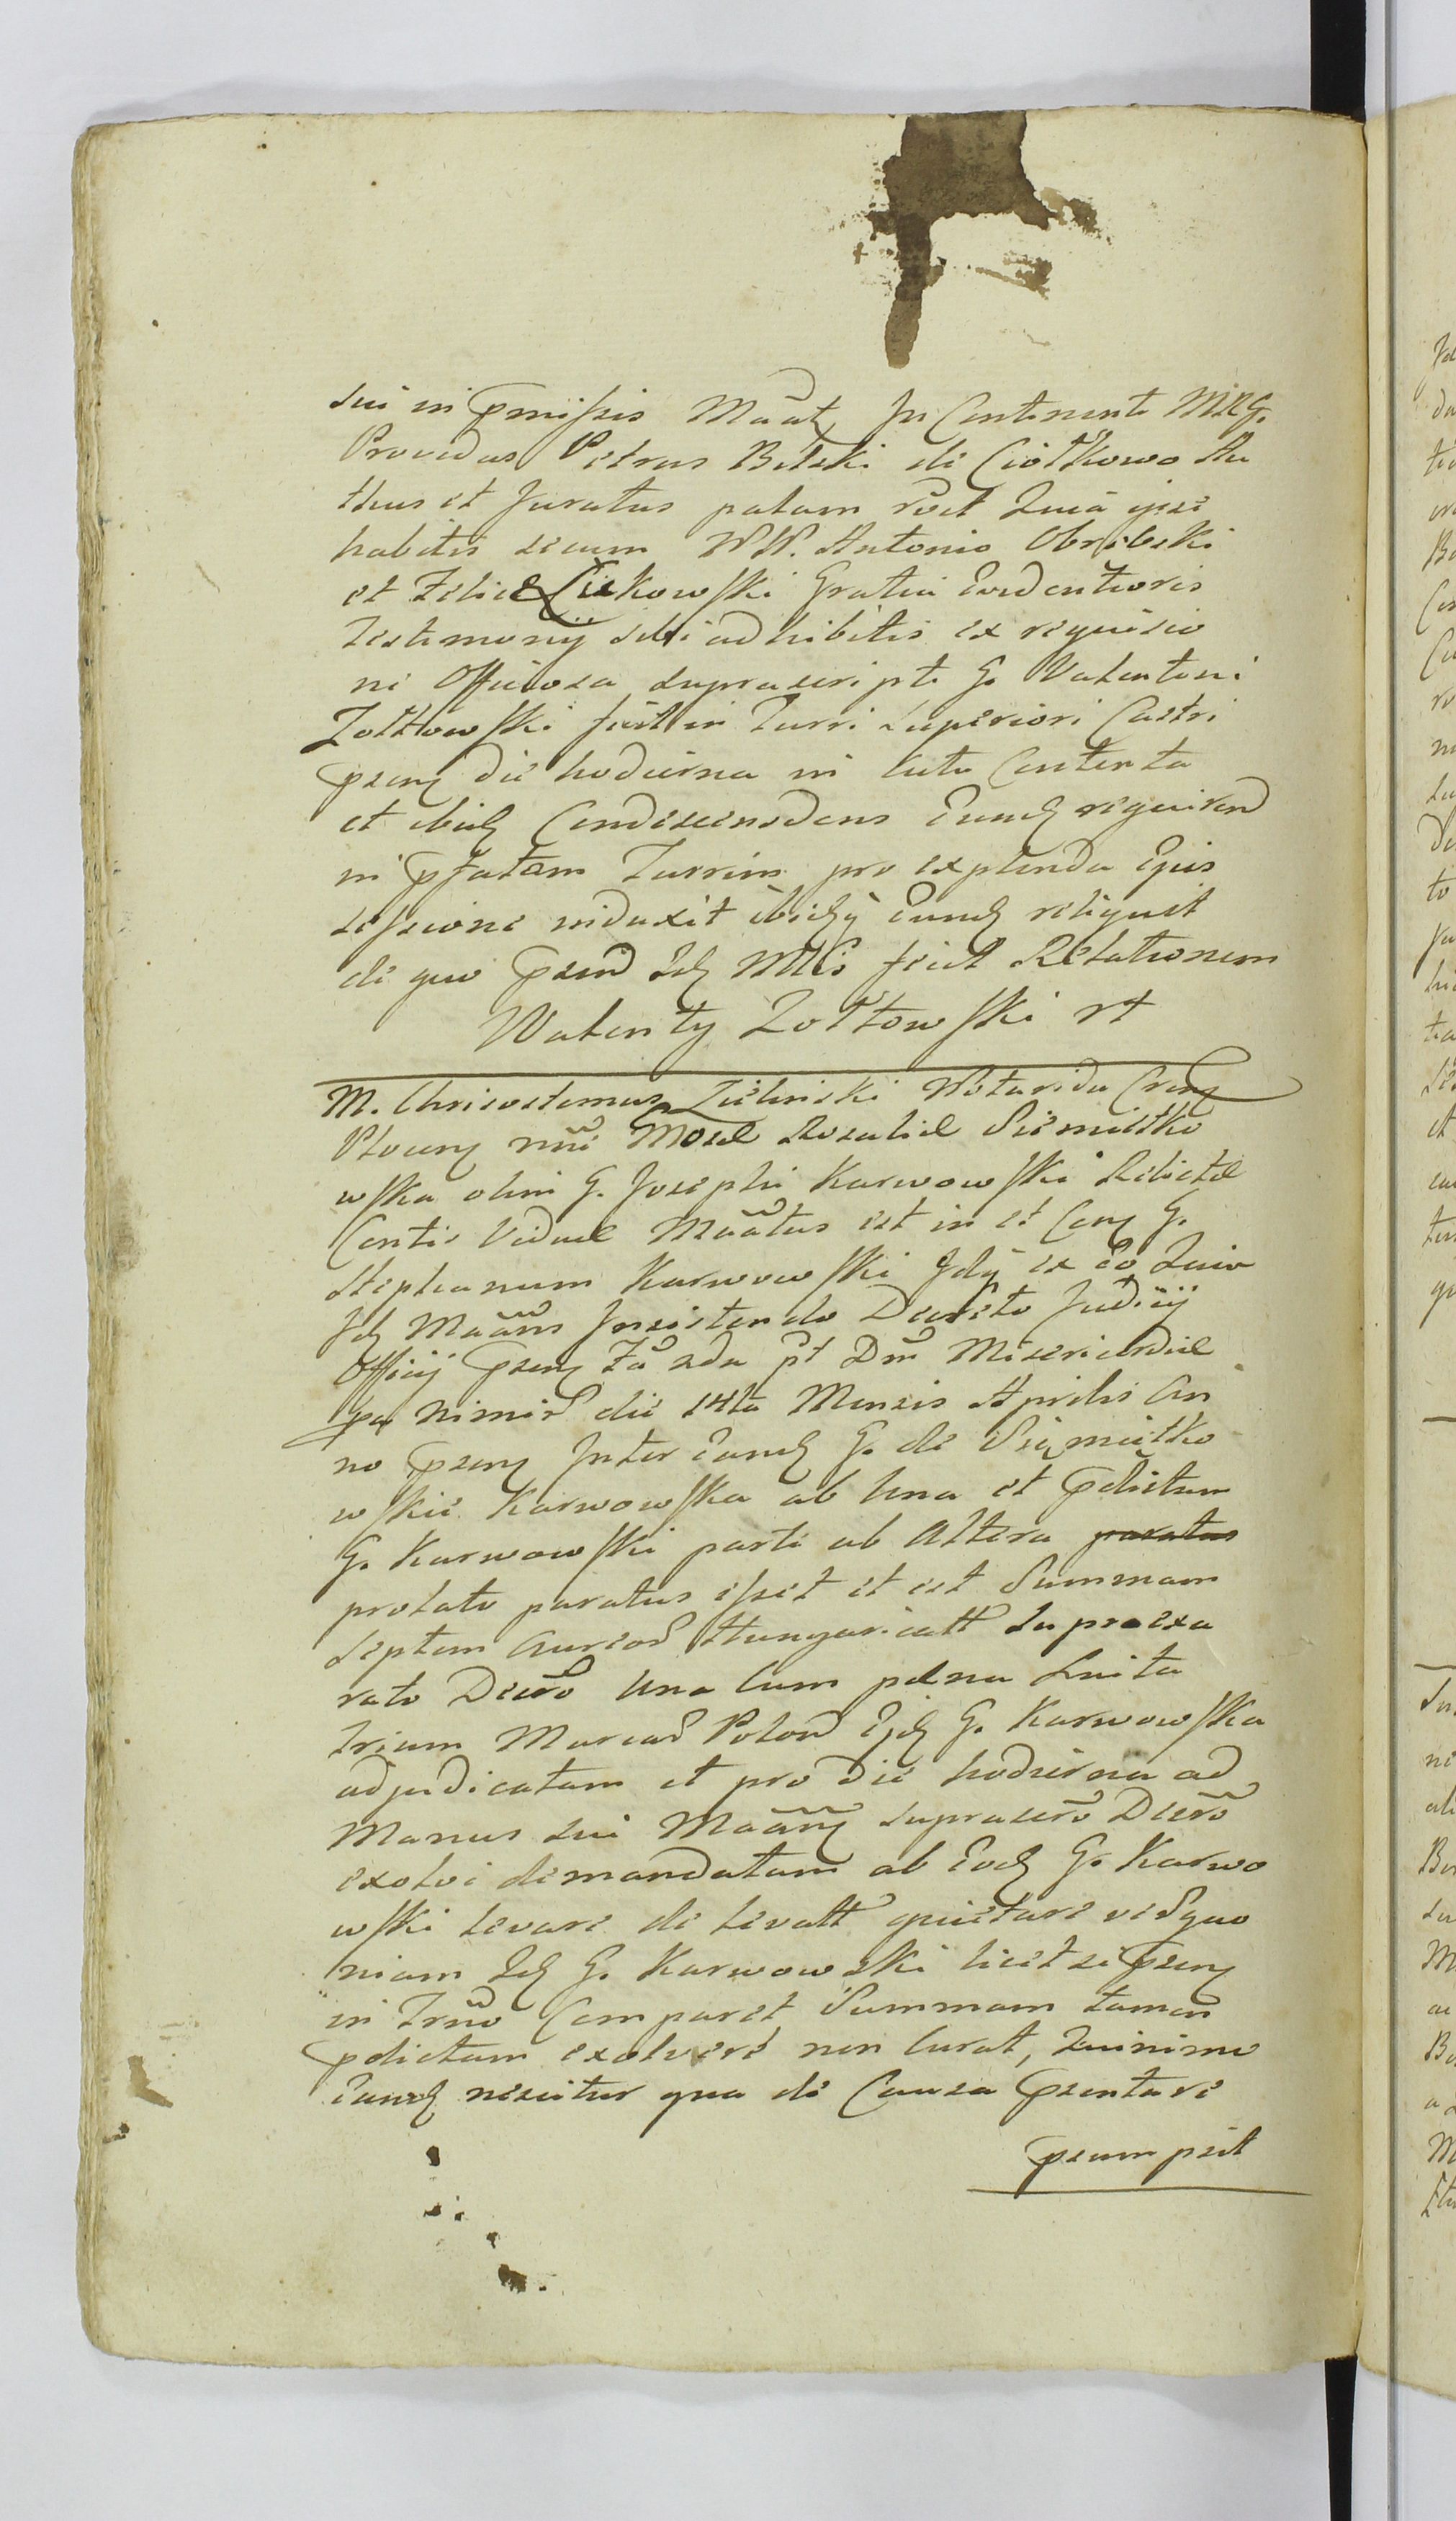 sui in pmissis Maat, In Continenti MRG.
Providus Petrus Bilski de Ciołkowo Au
thus et Juratus palam rect Quia ipse
habitis secum NN. Antonio Obrębski
et Felice Ciekowski Gratia Evidentioris
Testimonij sibi adhibitis ex requisio
ne Officiosa suprascripti G. Valentini
Zołtowski fuit in Turri Superiori Castri
psenq die hodierna in luta Contenta
et ibidq Condescensdens Eundq requirend
in pfatam Turrim pro explenda Ejus
sessione induxit ibidqq Eundq reliquit
de quo psend Idq Mtlis fecit Relationem
Walenty Zołtowski rt
M. Chrisostomus Zielinski Notarida Crenq
Plocenq nnie Mosae Rosaliae Siemiątko
wska olim G. Josephi Karwowski Relictae
Contis Viduae Maatus est in et Conq G.
Stephanum Karwowski Idqq ex eo Quia
Idq Maans Insistendo Decreto Judicij
Officij psenq Fa 2da pt Dm Misericordiae
pa nimir die 14ta Mensis Aprilis An
no psenq Inter Eandq G. de Siemiątko
wskie Karwowska ab Una et pdictum
G. Karwowski parte ab Altera paratus
prolato paratus esset et est Summam
Septem Aureor Hungaricatt Suproexa
rato Decro Una Cum paena Luita
trium Marcar Polon Ejdq G. Karwowska
adjudicatam et pro die hodierna ad
Manus sui Maanq suprascro Dcero
exolvi demandatam ab Eodq G. Karwo
wski levare de levatt quietare vedquo
niam Idq G. Karwowski licet se psenq
in Trno Comparet Summam tamen
pdictam exolvere non Curat, Quinimo
Eandq nescitur qua de Causa psentare
psumpsit